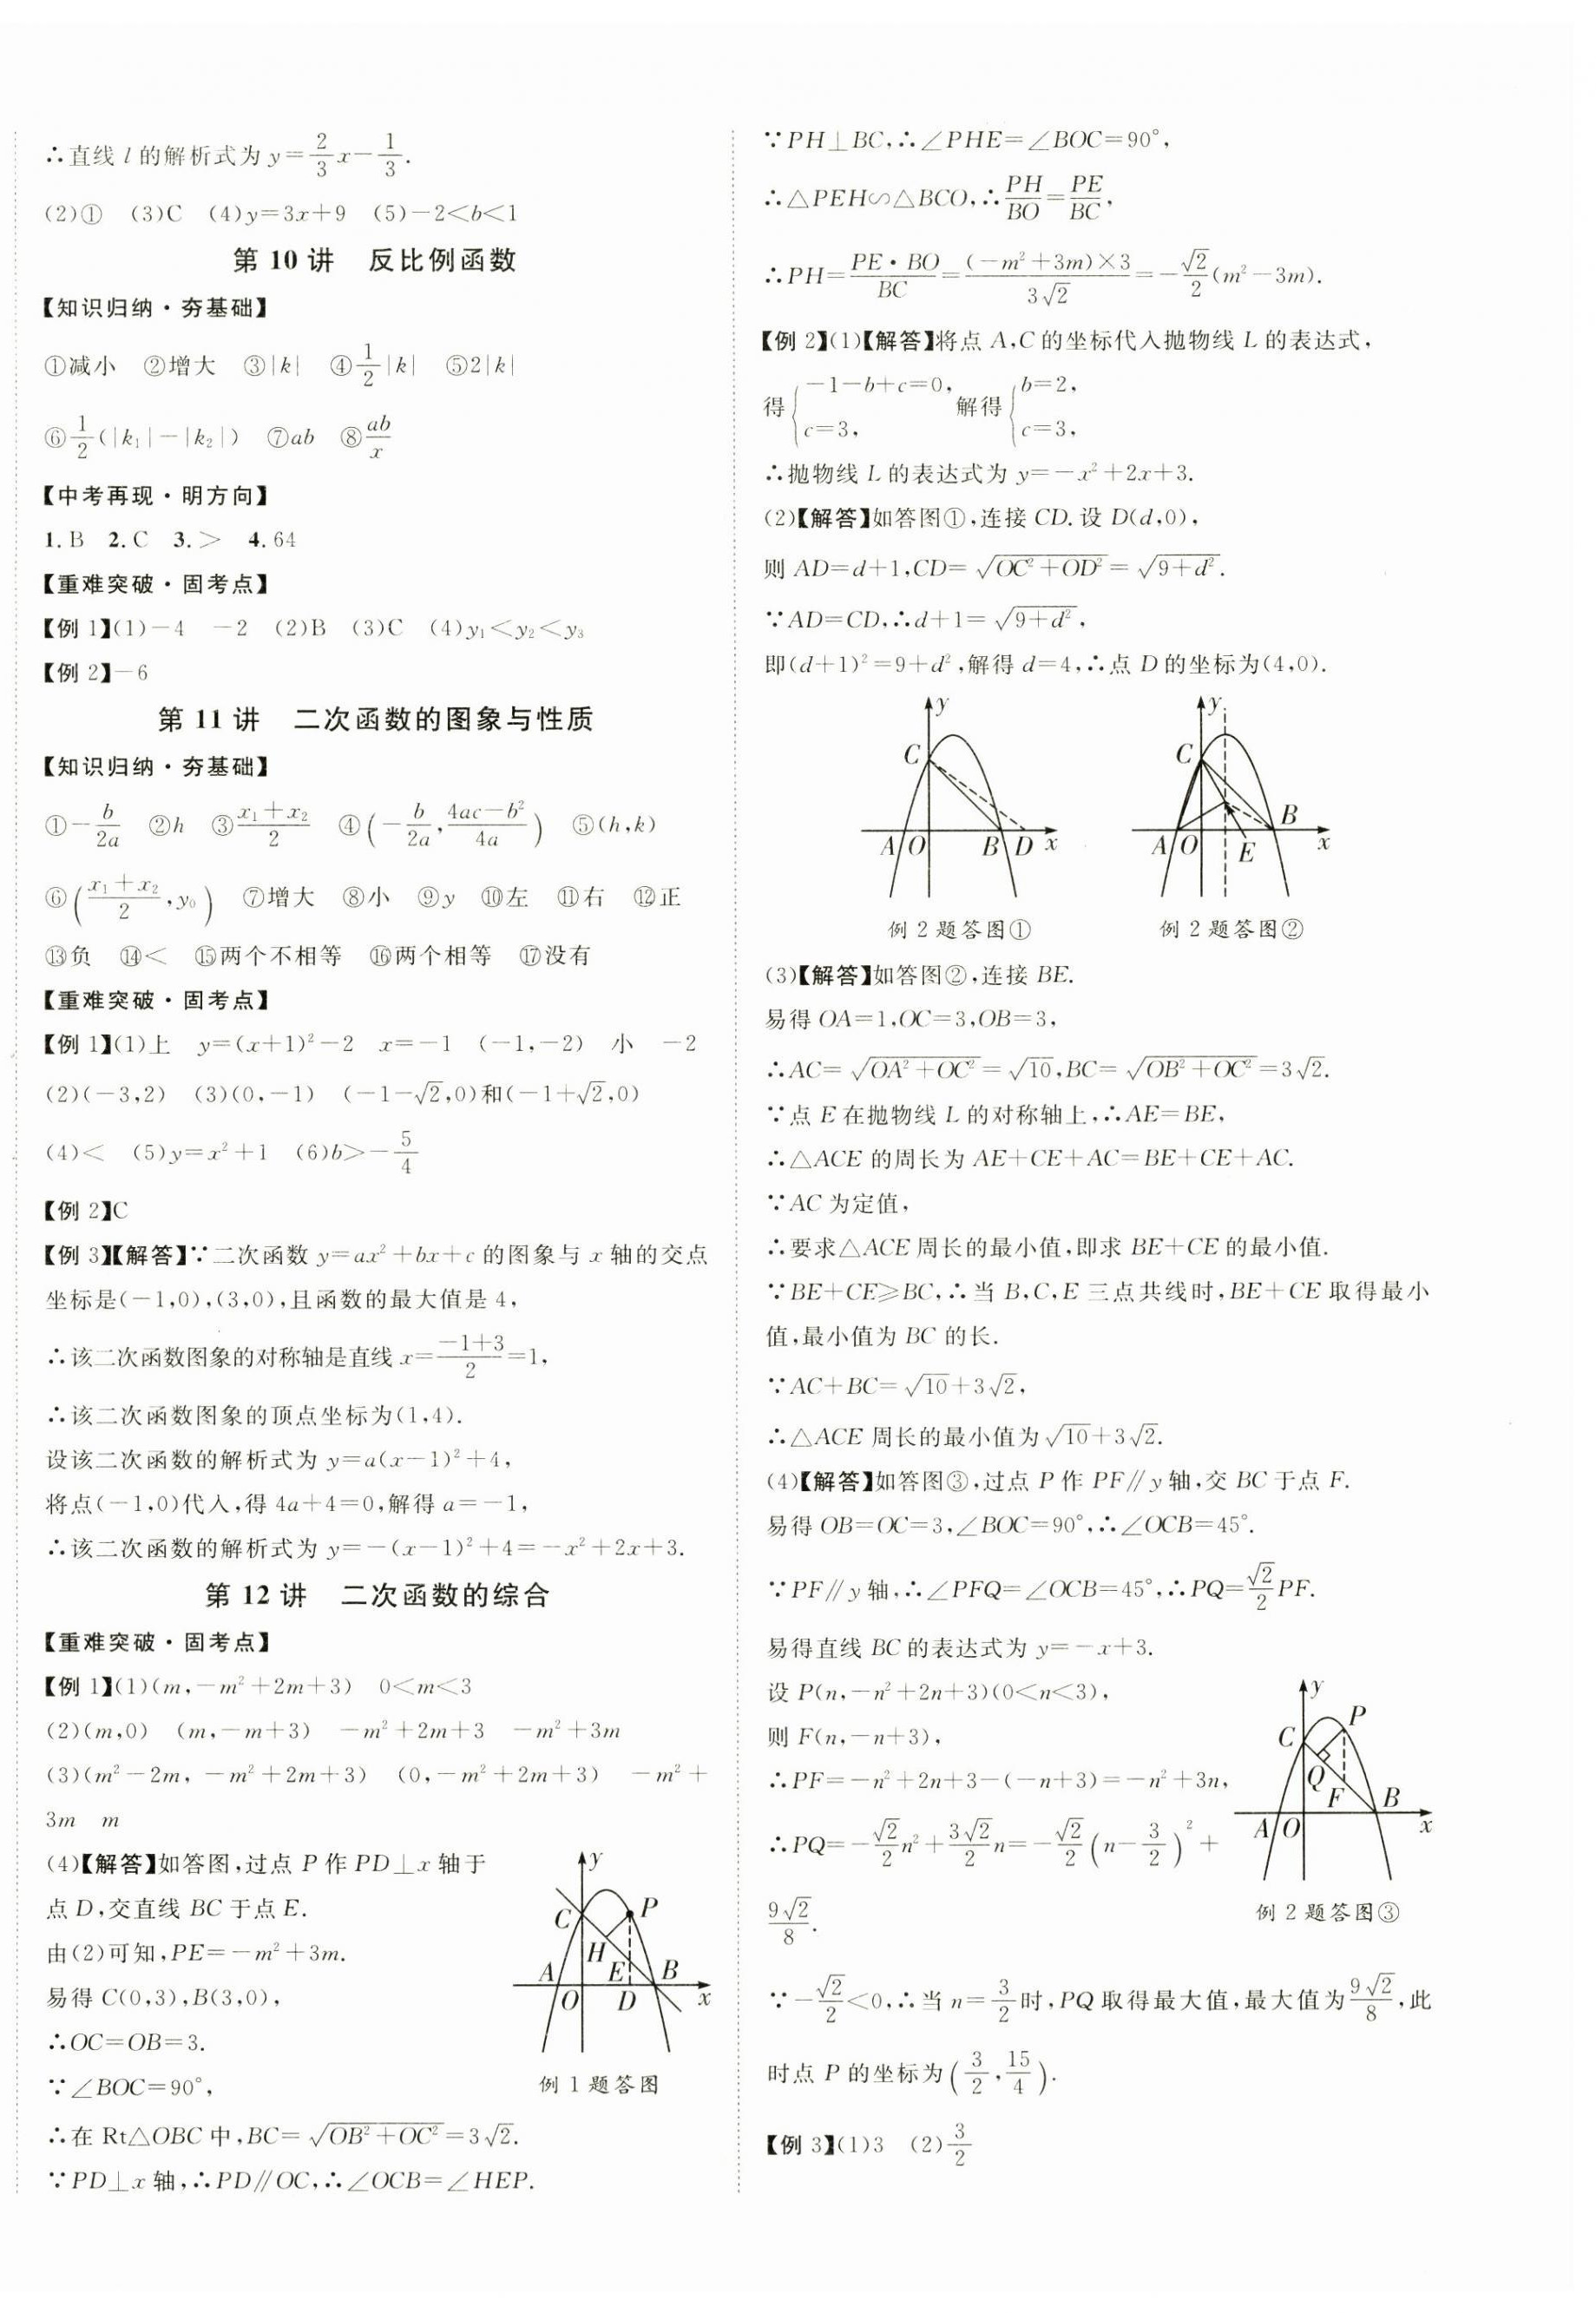 ∴直线 l 的解析式为 y=2/3x−1/3.
(2)① (3)C (4)y=3x+9 (5)−2<b<1
第 10 讲 反比例函数
【知识归纳·夯基础】
①减小 ②增大 ③|k| ④1/2|k| ⑤2|k|
⑥1/2(|k₁|−|k₂|) ⑦ab ⑧ab/x
【中考再现·明方向】
1. B 2. C 3. > 4. 64
【重难突破·固考点】
【例 1】(1)−4 −2 (2)B (3)C (4)y₁<y₂<y₃
【例 2】−6
第 11 讲 二次函数的图象与性质
【知识归纳·夯基础】
①−b/2a ②h ③(x₁+x₂)/2 ④(−b/2a,(4ac−b²)/4a) ⑤(h,k)
⑥((x₁+x₂)/2,y₀) ⑦增大 ⑧小 ⑨y ⑩左 ⑪右 ⑫正
⑬负 ⑭< ⑮两个不相等 ⑯两个相等 ⑰没有
【重难突破·固考点】
【例 1】(1)上 y=(x+1)²−2 x=−1 (−1,−2) 小 −2
(2)(−3,2) (3)(0,−1) (−1−√2,0)和(−1+√2,0)
(4)< (5)y=x²+1 (6)b>−5/4
【例 2】C
【例 3】【解答】∵二次函数 y=ax²+bx+c 的图象与 x 轴的交点
坐标是(−1,0),(3,0),且函数的最大值是 4,
∴该二次函数图象的对称轴是直线 x=(−1+3)/2=1,
∴该二次函数图象的顶点坐标为(1,4).
设该二次函数的解析式为 y=a(x−1)²+4,
将点(−1,0)代入,得 4a+4=0,解得 a=−1,
∴该二次函数的解析式为 y=−(x−1)²+4=−x²+2x+3.
第 12 讲 二次函数的综合
【重难突破·固考点】
【例 1】(1)(m,−m²+2m+3) 0<m<3
(2)(m,0) (m,−m+3) −m²+2m+3 −m²+3m
(3)(m²−2m,−m²+2m+3) (0,−m²+2m+3) −m²+
3m m
(4)【解答】如答图,过点 P 作 PD⊥x 轴于
点 D,交直线 BC 于点 E.
由(2)可知,PE=−m²+3m.
易得 C(0,3),B(3,0),
∴OC=OB=3.
∵∠BOC=90°,
y
C
P
H
A
E
B
O
D
x
例 1 题答图
∴在 Rt△OBC 中,BC=√(OB²+OC²)=3√2.
∵PD⊥x 轴,∴PD∥OC,∴∠OCB=∠HEP.
∵PH⊥BC,∴∠PHE=∠BOC=90°,
∴△PEH∽△BCO,∴PH/BO=PE/BC,
∴PH=PE·BO/BC=(−m²+3m)×3/3√2=−√2/2(m²−3m).
【例 2】(1)【解答】将点 A,C 的坐标代入抛物线 L 的表达式,
得{−1−b+c=0, c=3, 解得{b=2, c=3,
∴抛物线 L 的表达式为 y=−x²+2x+3.
(2)【解答】如答图①,连接 CD. 设 D(d,0),
则 AD=d+1,CD=√(OC²+OD²)=√(9+d²).
∵AD=CD,∴d+1=√(9+d²),
即(d+1)²=9+d²,解得 d=4,∴点 D 的坐标为(4,0).
y
C
A
O
B
D
x
例 2 题答图①
y
C
B
A
O
E
x
例 2 题答图②
(3)【解答】如答图②,连接 BE.
易得 OA=1,OC=3,OB=3,
∴AC=√(OA²+OC²)=√10,BC=√(OB²+OC²)=3√2.
∵点 E 在抛物线 L 的对称轴上,∴AE=BE,
∴△ACE 的周长为 AE+CE+AC=BE+CE+AC.
∵AC 为定值,
∴要求△ACE 周长的最小值,即求 BE+CE 的最小值.
∵BE+CE≥BC,∴当 B,C,E 三点共线时,BE+CE 取得最小
值,最小值为 BC 的长.
∵AC+BC=√10+3√2,
∴△ACE 周长的最小值为√10+3√2.
(4)【解答】如答图③,过点 P 作 PF∥y 轴,交 BC 于点 F.
易得 OB=OC=3,∠BOC=90°,∴∠OCB=45°.
∵PF∥y 轴,∴∠PFQ=∠OCB=45°,∴PQ=√2/2PF.
易得直线 BC 的表达式为 y=−x+3.
设 P(n,−n²+2n+3)(0<n<3),
则 F(n,−n+3),
∴PF=−n²+2n+3−(−n+3)=−n²+3n,
∴PQ=−√2/2n²+3√2/2n=−√2/2(n−3/2)²+
9√2/8.
y
P
C
Q
F
B
A
O
x
例 2 题答图③
∵−√2/2<0,∴当 n=3/2时,PQ 取得最大值,最大值为9√2/8,此
时点 P 的坐标为(3/2,15/4).
【例 3】(1)3 (2)3/2